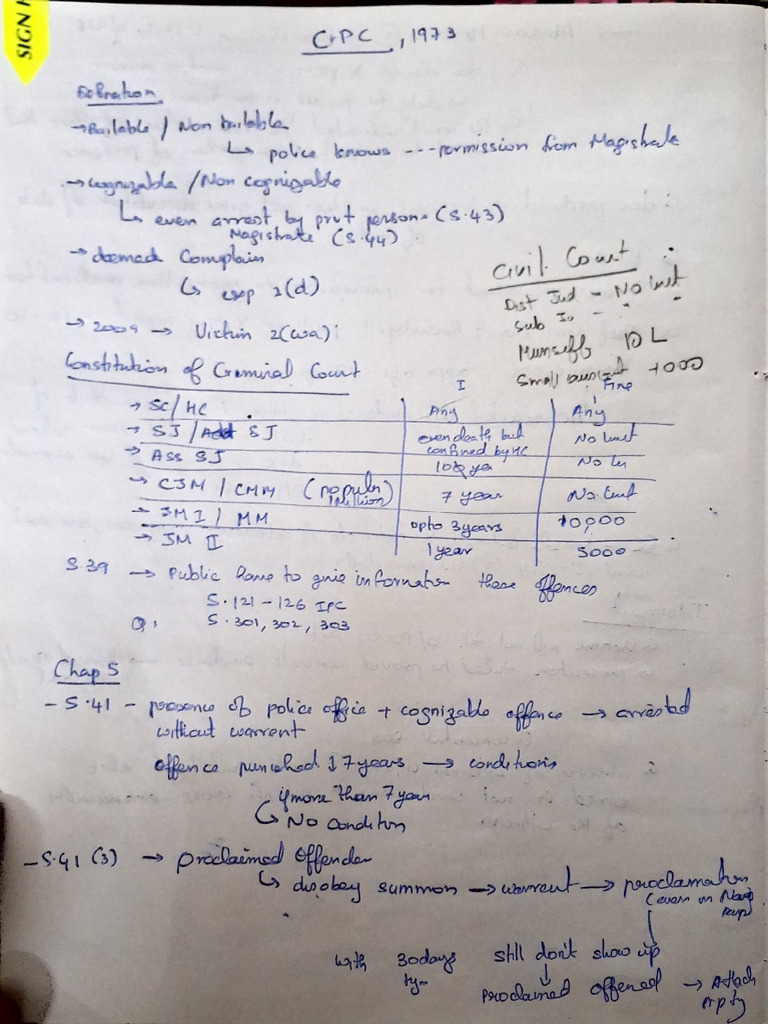 SIGN
CrPC, 1973
Defination
→ Bailable / Non bailable
↳ police knows --- permission from Magistrate
→ cognizable / Non cognizable
↳ even arrest by prvt person. (S.43)
Magistrate (S.44)
→ deemed Complain
↳ exp 2(d)
→ 2009 → Victim 2(wa):
Civil Court
Dist Jud - No Limit
Sub Ju - "
Munsiff 10 L
Small 1000
Constitution of Criminal Court
I Fine
→ SC/HC Any Any
→ SJ / Add SJ even death but confined by HC No Limit
→ Ass SJ 10 ye No Li
→ CJM / CMM (populn 1 Million) 7 year No Limit
→ JM I / MM upto 3 years 10,000
→ JM II 1 year 5000
S.39 → Public have to give information these offences
S.121-126 IPC
Q. S.301, 302, 303
Chap 5
- S.41 - presence of police office + cognizable offence → arrested
without warrent
offence punished ↓ 7 years → conditions
if more than 7 year
↳ No Condition
- S.41 (3) → proclaimed offender
↳ disobey summon → warrent → proclamation
(even on
with 30 days still don't show up
tym ↓
proclaimed offened → Attach
prpty